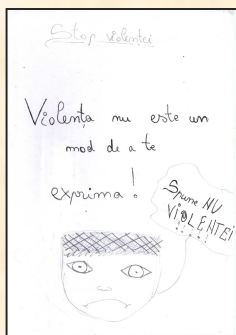 Stop violenței
Violența nu este un
mod de a te
exprima!
Spune NU
ViOLENȚEi
!!!!